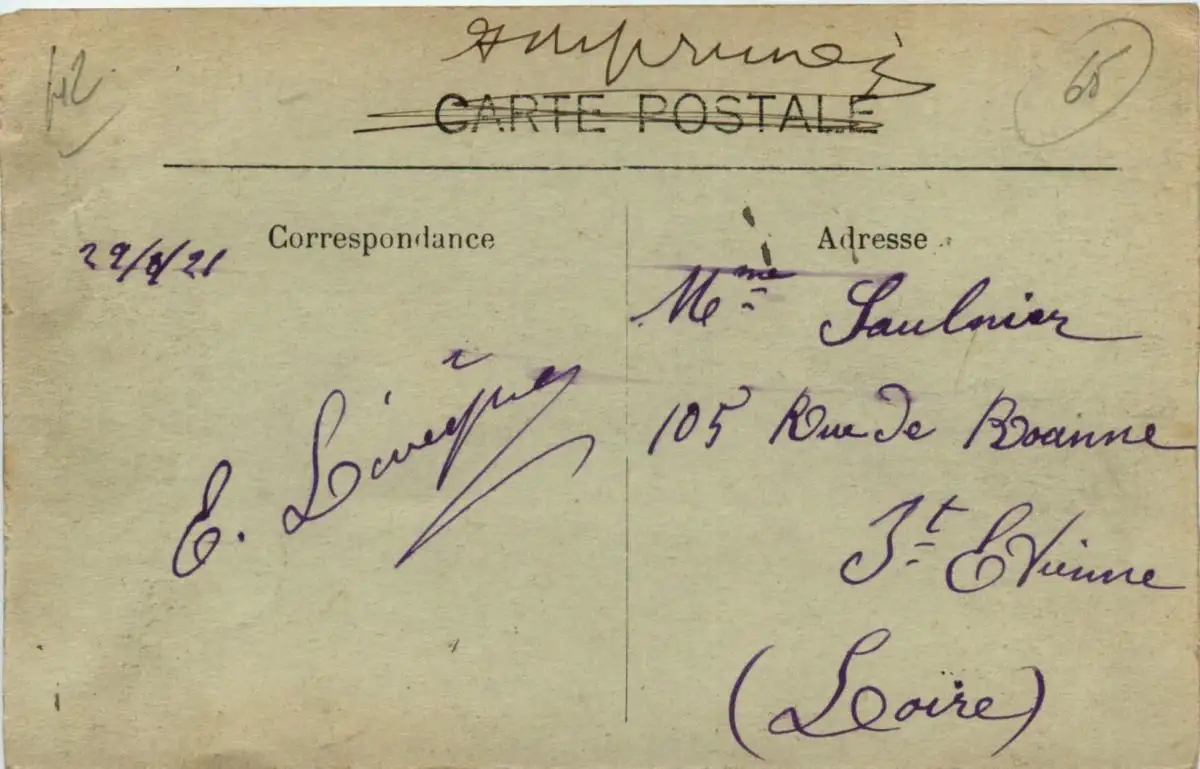 Imprimés
42
65
CARTE POSTALE
Correspondance
Adresse
29/8/21
Mme Saulnier
E. Lévêque
105 Rue de Roanne
St Etienne
(Loire)